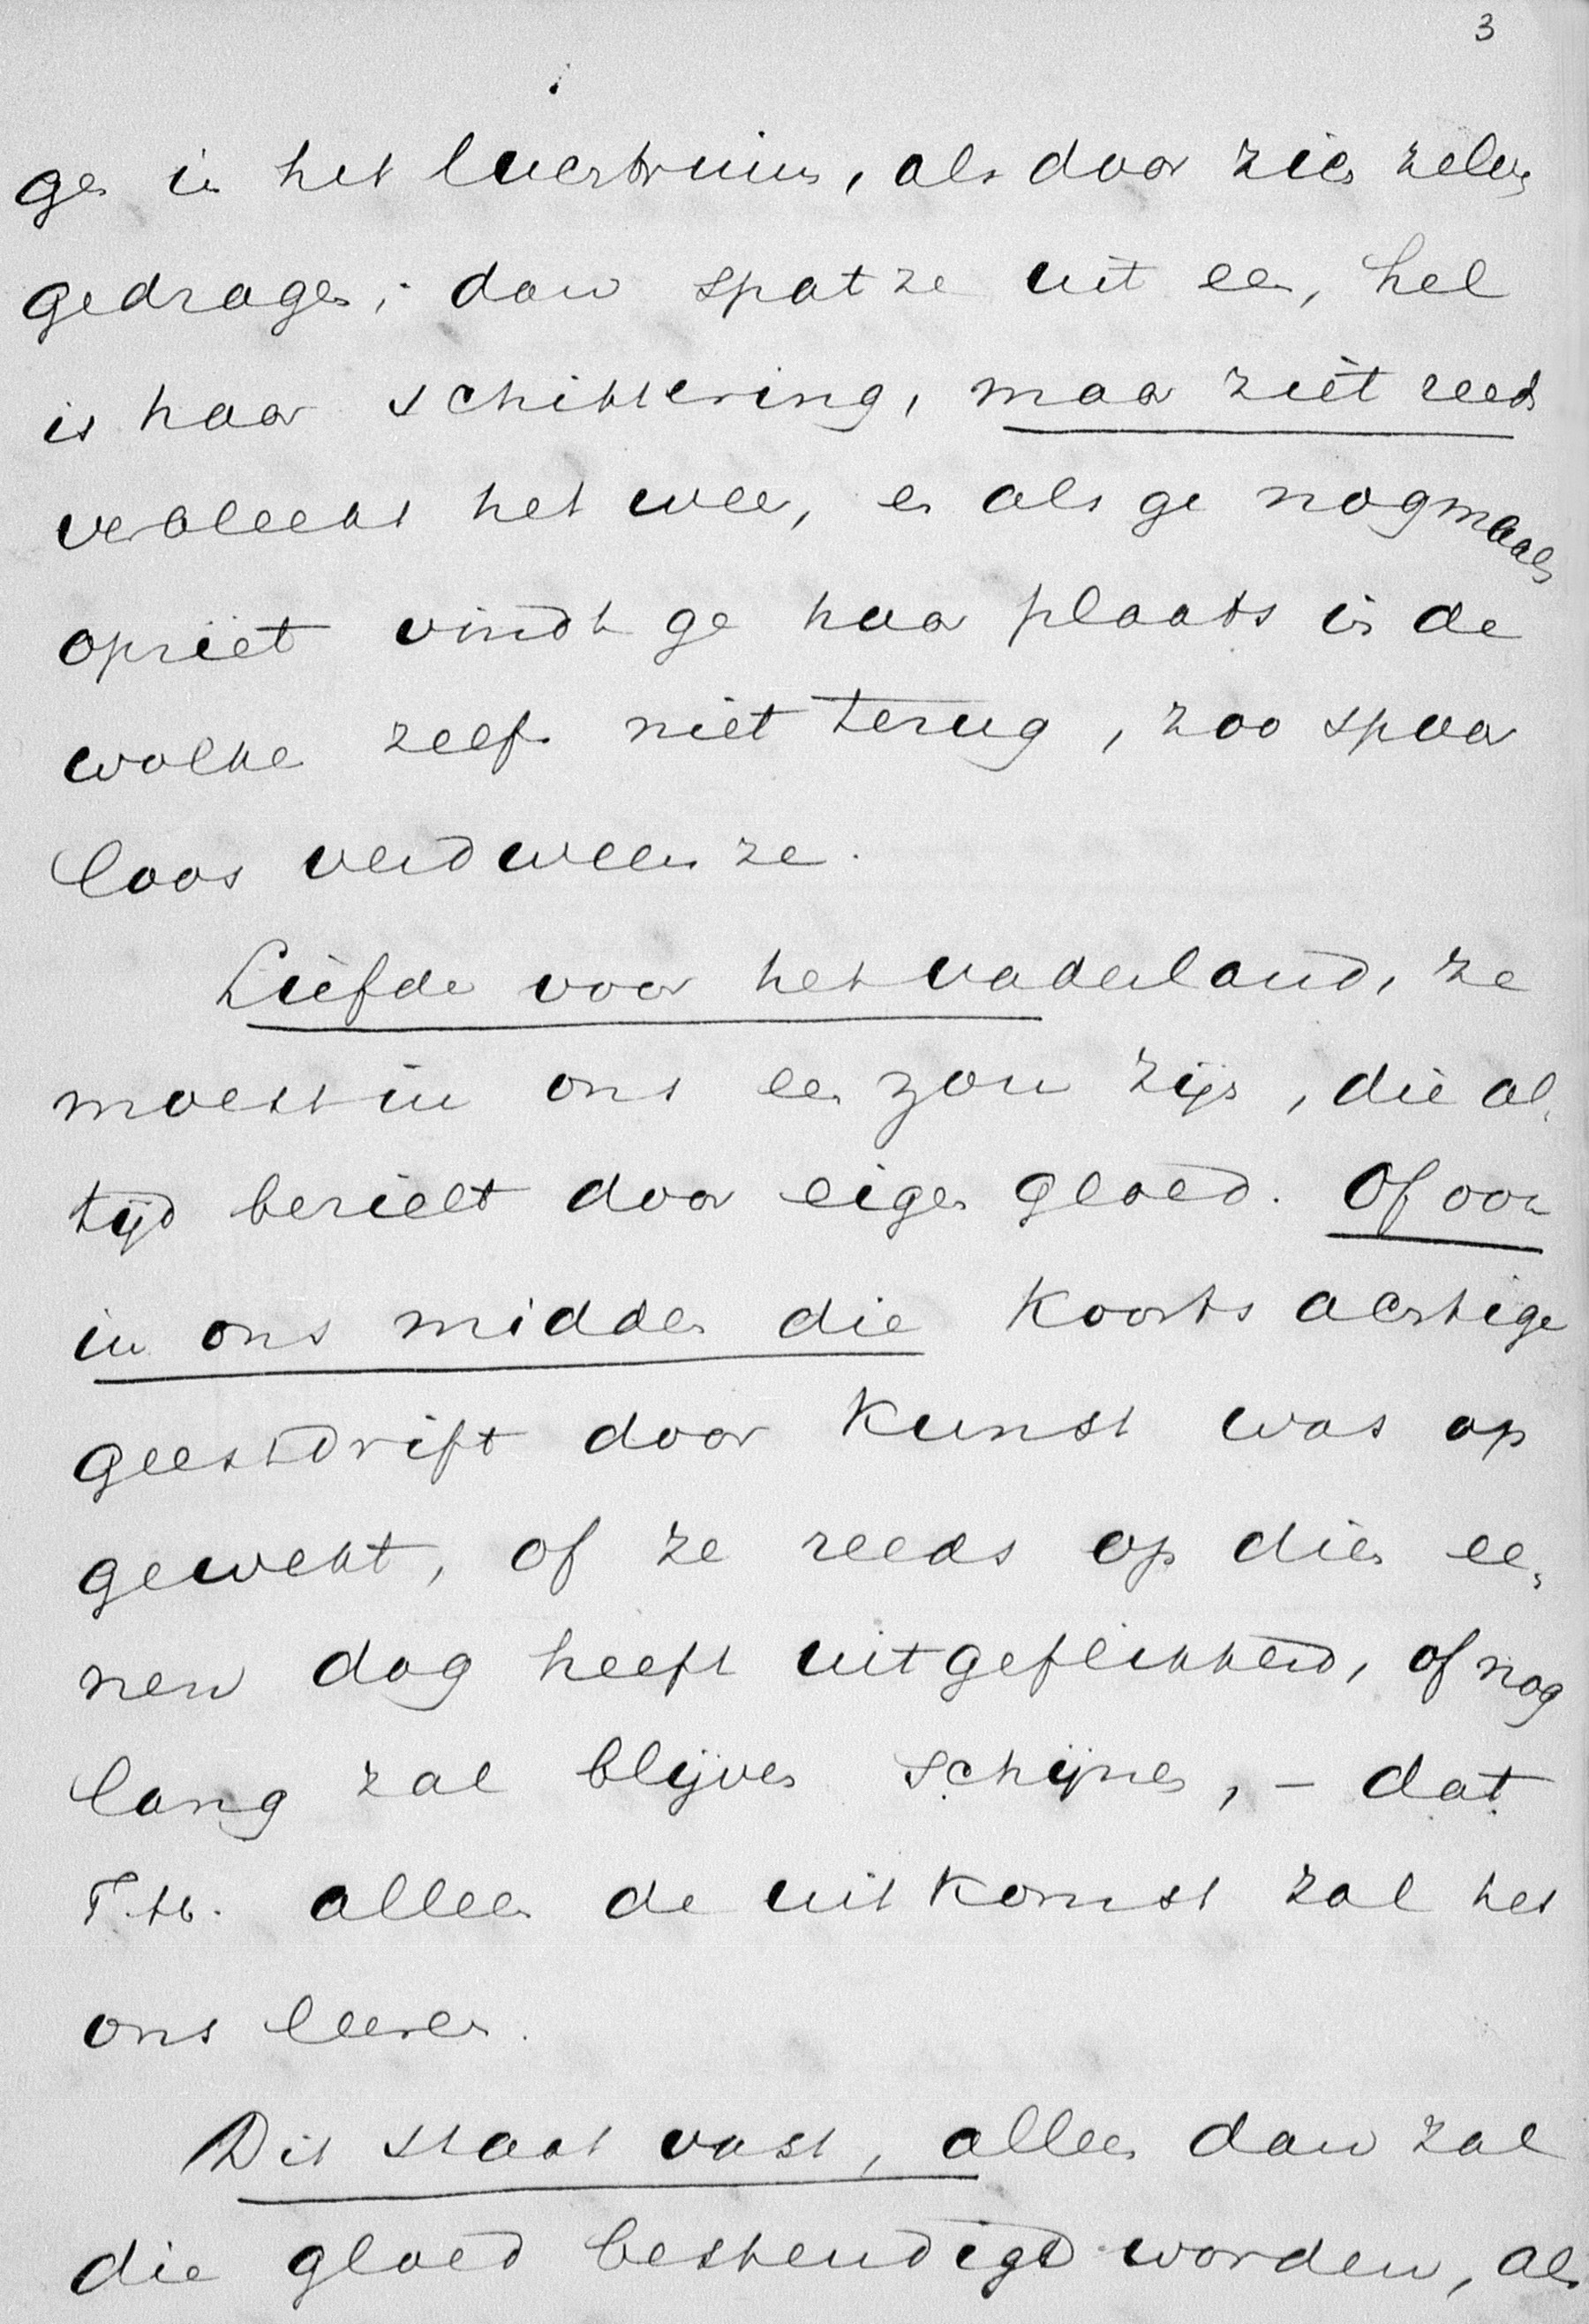 3
gen in het luchtruim, als door zich zelve
gedragen; dan spat ze uit een, hel
is haar schittering, maar ziet reeds
verbleekt het weer, en als ge nogmaals
opziet vindt ge haar plaats in de
wolke zelfs niet terug, zoo spoor
loos verdween ze.
Liefde voor het vaderland, ze
moest in ons een zon zijn, die al
tijd bezielt door eigen gloed. Of ook
in ons midden die koortsachtige
geestdrift door kunst was op
gewekt, of ze reeds op dien ee-
nen dag heeft uitgeflikkerd, of nog
lang zal blijven schijnen, - dat
T.H. alleen de uitkomst zal het
ons leeren.
Dit staat vast, alleen dan zal
die gloed bestendigd worden, als